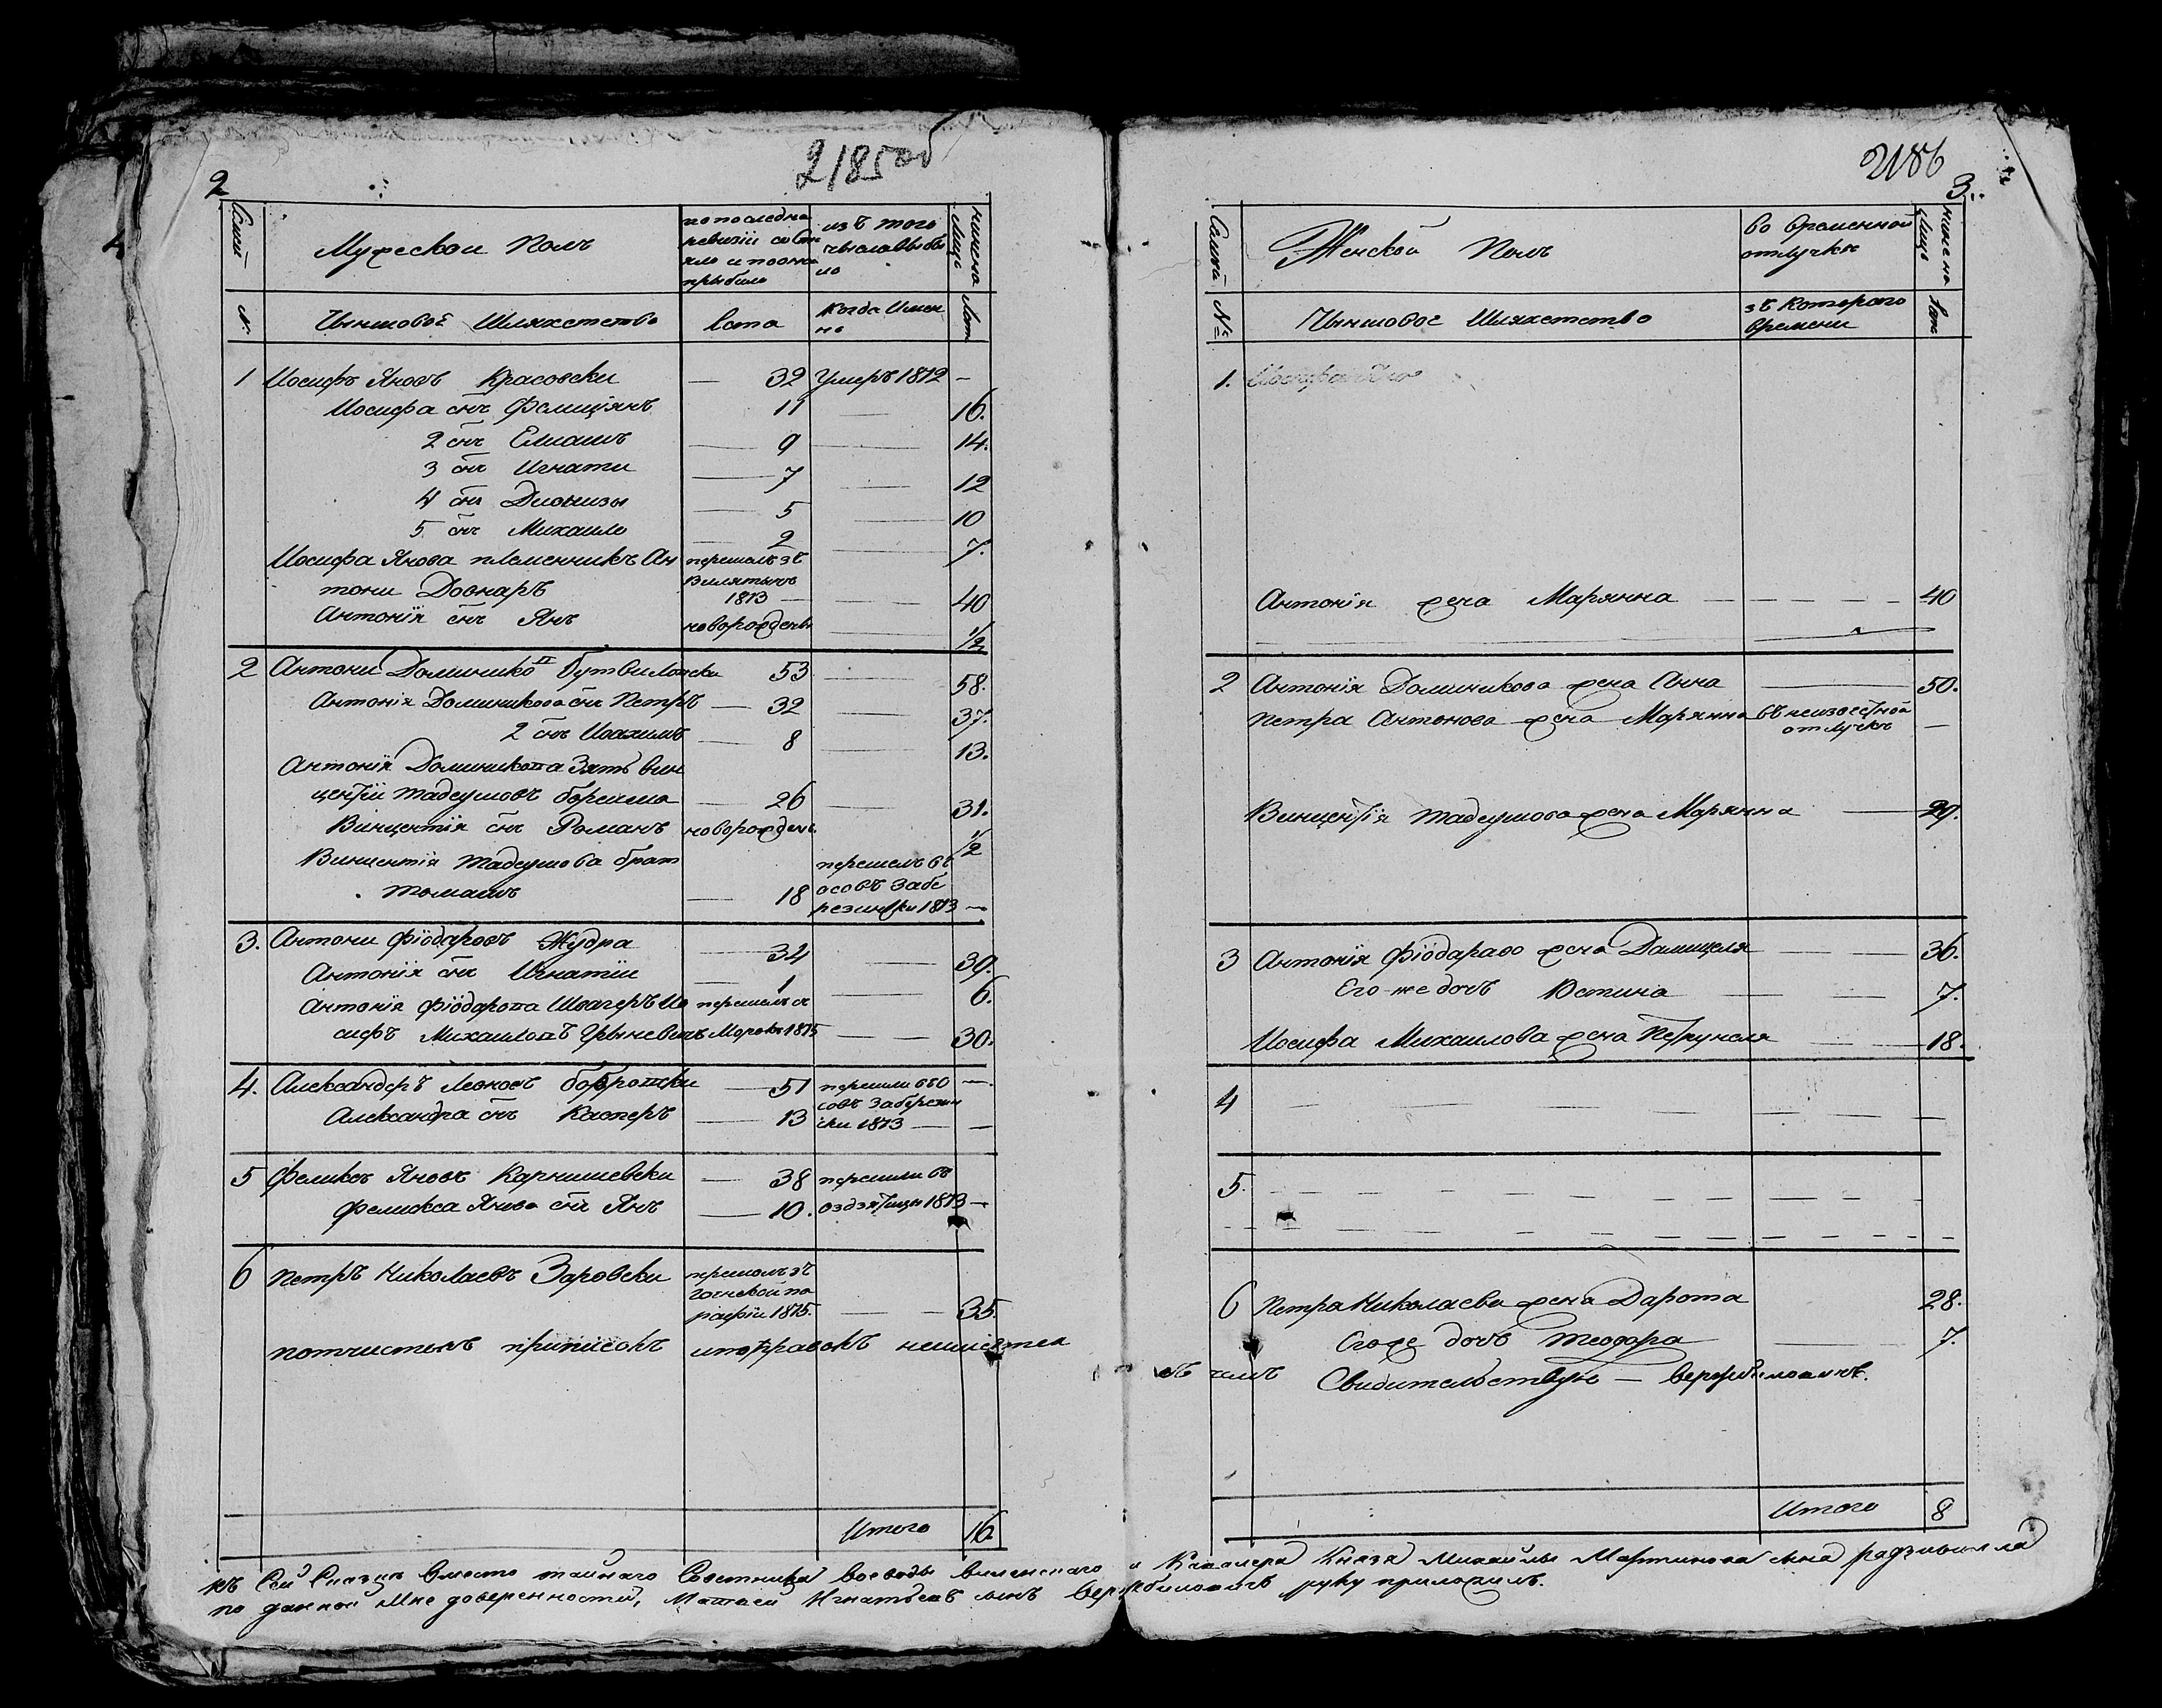 2
2185об
Семьи
Мужеской Полъ
по последне
ревизіи состо
яло и после
прыбыло
изъ того
числа выбы
ло
ныне на
лицо
№
Чыншовое Шляхетство
Лета
когда Имен
но
Лет
1 Иосифъ Яновъ Красовски — 32 Умеръ 1812 —
Иосифа снъ Фелицыянъ 11 — 16.
2 снъ Елиашъ — 9 — 14.
3 снъ Игнати — 7 — 12
4 снъ Дионизы — 5 — 10
5 снъ Михаило — 2 — 7.
Иосифа Янова племенникъ Ан перешолъ зъ
тони Довнаръ
1813 — — 40
Антонія снъ Янъ новорожденъ — 1/2
2 Антони Доминико Бутвиловски 53 — 58.
Антонія Доминикова снъ Петръ — 32 — 37.
2 снъ Иоахимъ — 8 — 13.
Антонія Доминикова Зять Вин
центіи Тадеушовъ Борейша — 26 — 31.
Винцентія снъ Романъ новорожденъ 1/2
Винцентія Тадеушова брат перешелъ въ
Томашъ — 18 осовъ Забе
резински 1813 —
3. Антони Фіодаровъ Жудра — 34 — 39.
Антонія снъ Игнатіи — 1 — 6.
Антонія Фіодарова Швагеръ Ио перешолъ съ
сифъ Михаиловъ Грыневичъ 1815 — — 30.
4. Александеръ Леоновъ Бобровски — 51 перешли въ о —
Александра снъ Касперъ — 13 совъ Заберезин
ски 1813 — —
5 Феликсъ Яновъ Карнишевски — 38 перешли въ
Феликса Янова снъ Янъ — 10. 1813 —
6 Петръ Николаевъ Заровски перешолъ зъ
рафіи 1815. — — 35.
почистымъ приписокъ ипоправокъ неимѣется
Итого 16
2186
3.
Семьи
Женской Полъ
во временной
отлучке
ныне на
лицо
№
Чыншовое Шляхетство
зъ Котораго
Времени
Лет
1. Иосифа Яно
Антонія жена Марянна — — — — 40
2 Антонія Доминикова жена Анна — 50.
Петра Антонова жена Марянна въ неизвестной
отлучке —
Винцентія Тадеушова жена Марянна — 29.
3 Антонія Фіодараво жена Домицеля — — 36.
Его-же дочъ Юстина — — 7.
Иосифа Михаилова жена Петрунеля — — 18.
4 — — — — — — — —
5. — — — — — — — —
6 Петра Николаева жена Дарота 28.
Егоже дочъ Теодора — 7.
въ чемъ Свидительствую — Вержбиловичъ.
Итого 8
къ Сей Сказце вместо тайнаго Советника воеводы виленскаго и Кавалера Князя Михайлы Мартинова сына радзивилла
по данной Мне доверенностій, Матвей Игнатьевъ сынъ Вержбиловичъ руку приложилъ.